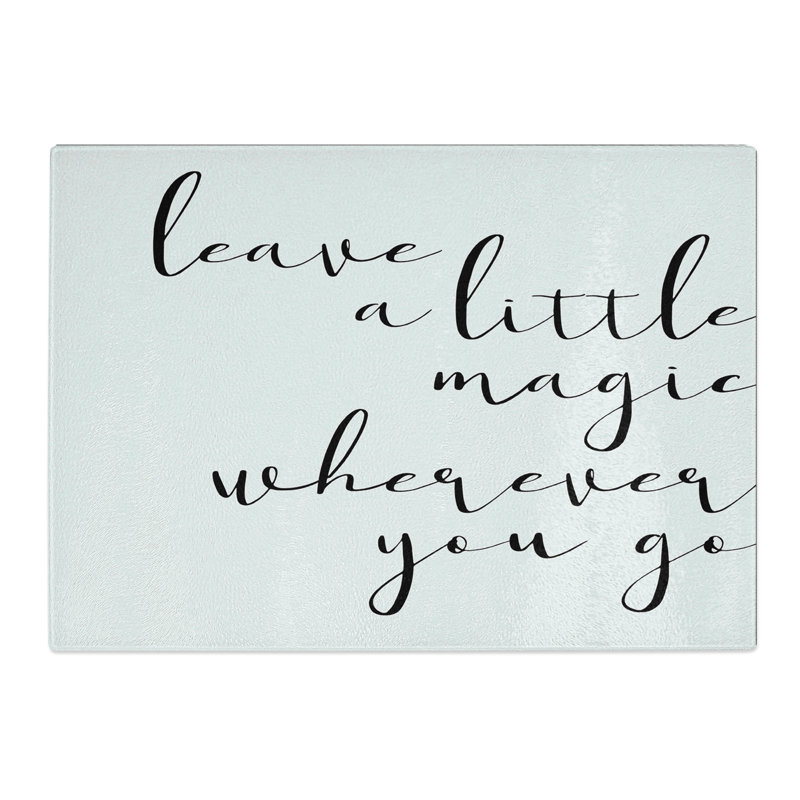 leave
a little
magic
wherever
you go